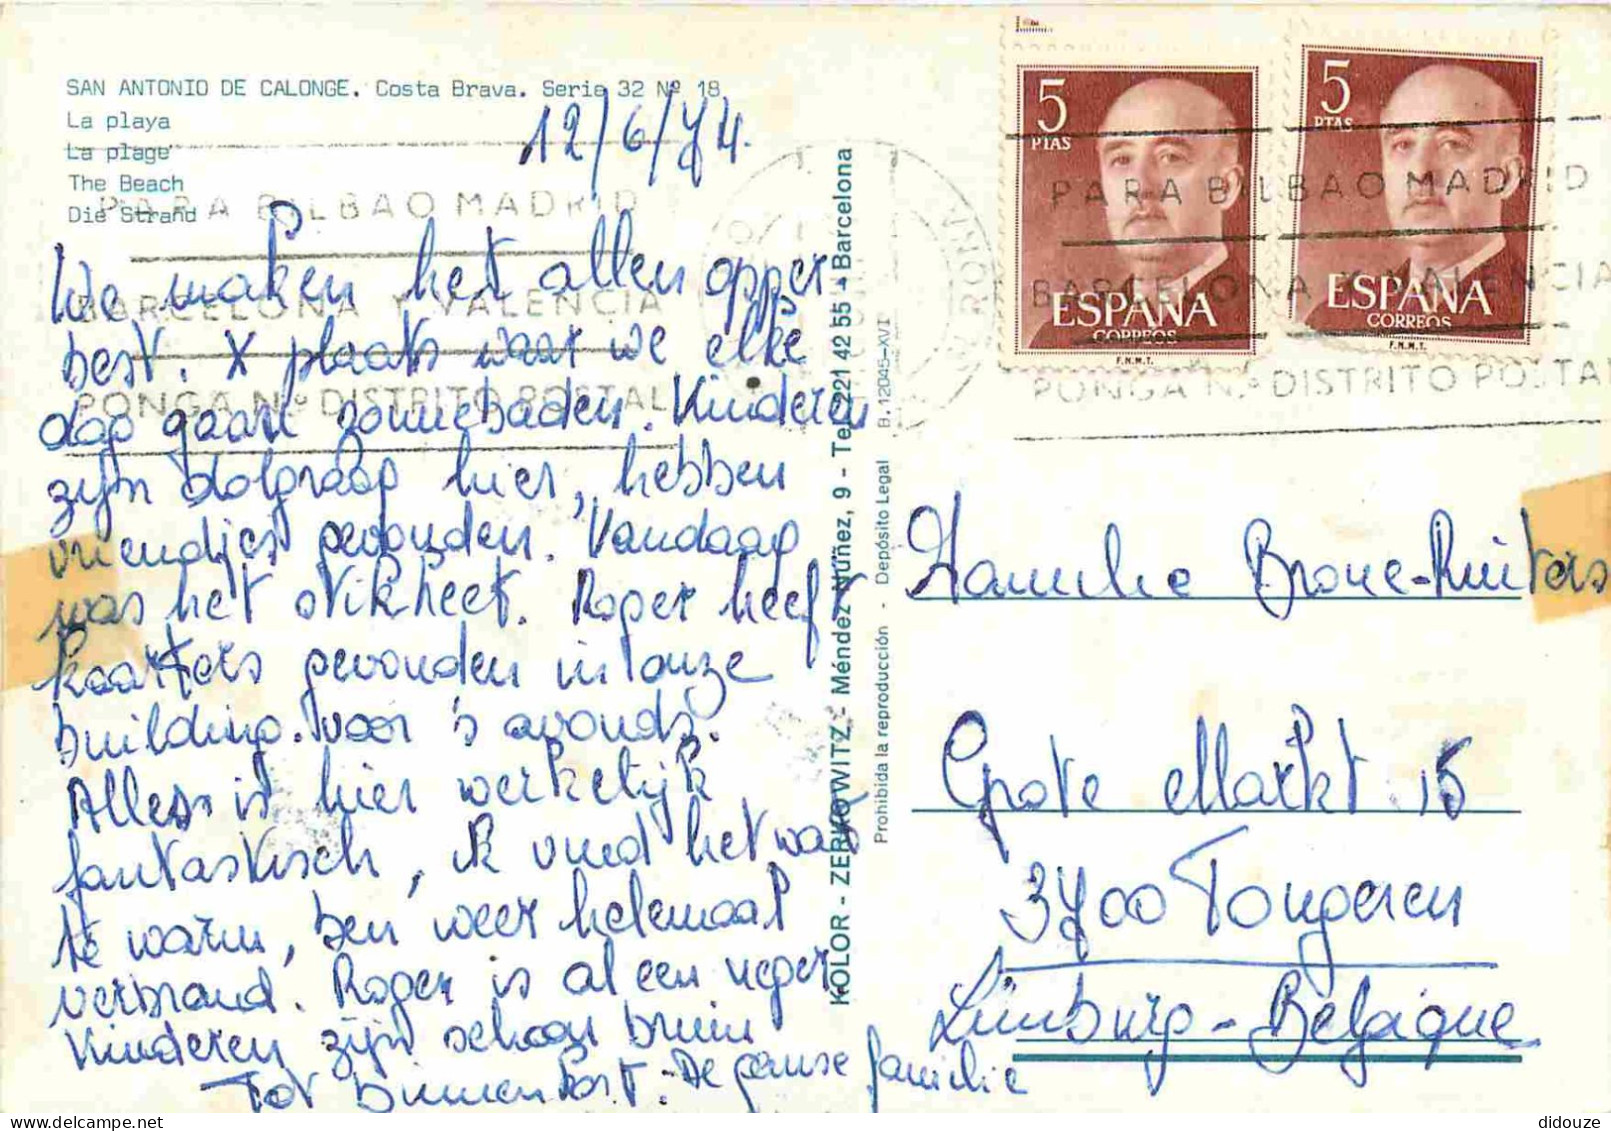 SAN ANTONIO DE CALONGE. Costa Brava. Serie 32 Nº 18
La playa
La plage
The Beach
Die Strand
12/6/74.
We maken het allen opper
best. X plaats waar we elke
dag gaan zonnebaden. Kinderen
zijn dolgraag hier, hebben
vriendjes gevonden. Vandaag
was het stikheet. Roger heeft
kaarters gevonden in onze
building. voor 's avonds.
Alles is hier werkelijk
fantastisch, ik vind het wat
te warm, ben weer helemaal
verbrand. Roger is al een neger
Kinderen zijn schoon bruin
Tot binnenkort. - De ganse familie
KOLOR - ZERKOWITZ - Méndez Núñez, 9 - Tel. 221 42 55 - Barcelona
Prohibida la reproducción - Depósito Legal B. 12045-XVI
5
PTAS
ESPAÑA
CORREOS
F.N.M.T.
5
PTAS
ESPAÑA
CORREOS
F.N.M.T.
PARA BILBAO MADRID
BARCELONA Y VALENCIA
PONGA N.º DISTRITO POSTAL
PARA BILBAO MADRID
BARCELONA Y VALENCIA
PONGA N.º DISTRITO POSTAL
Familie Brone-Ruiters
Grote Markt 15
3700 Tongeren
Limburg - Belgique
didouze